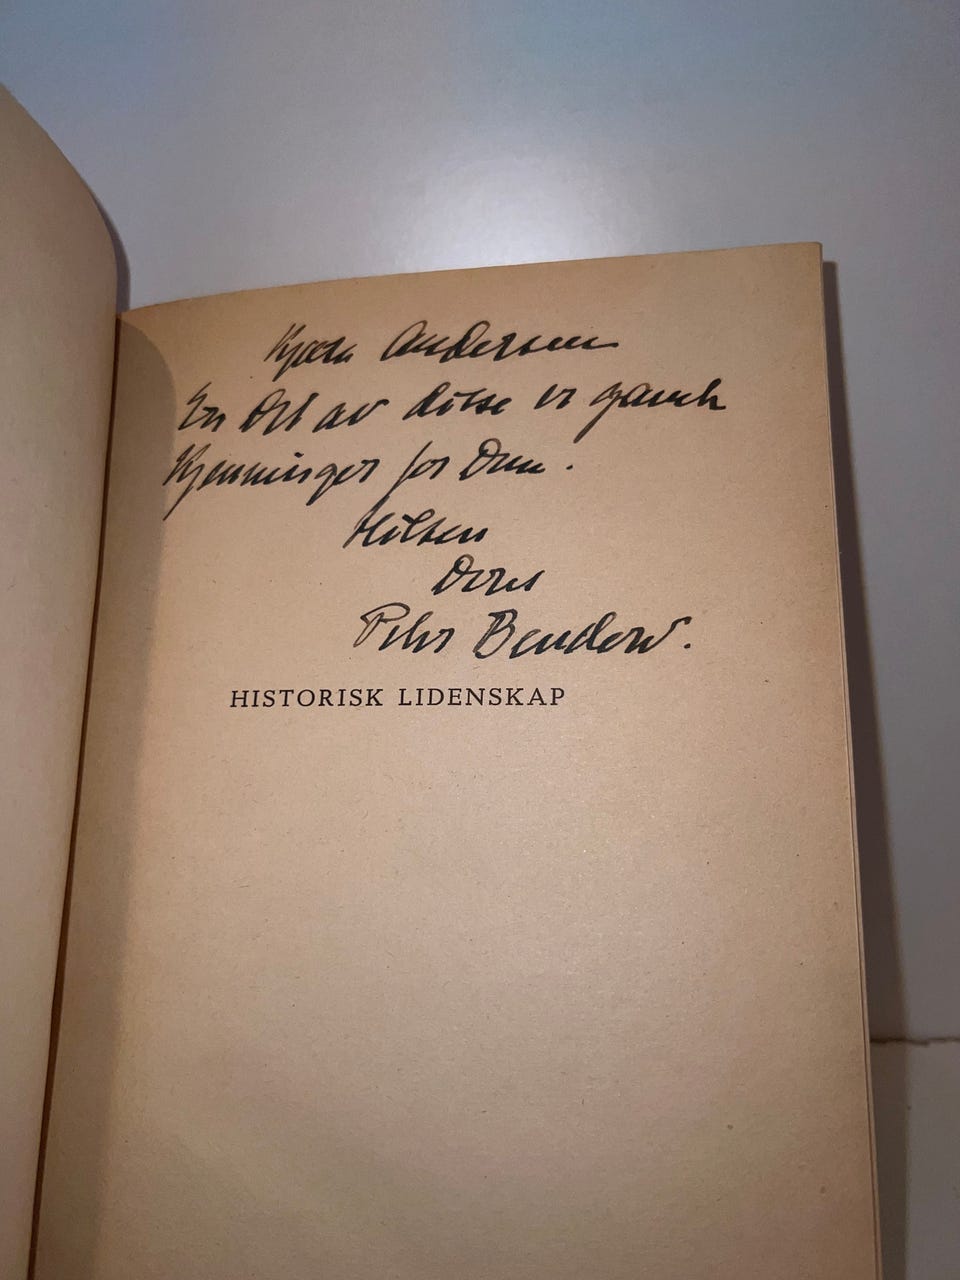 Kjære Andersen
En del av disse er gamle
Kjenninger for Dem.
Hilsen
Deres
Peter Bendow.
HISTORISK LIDENSKAP